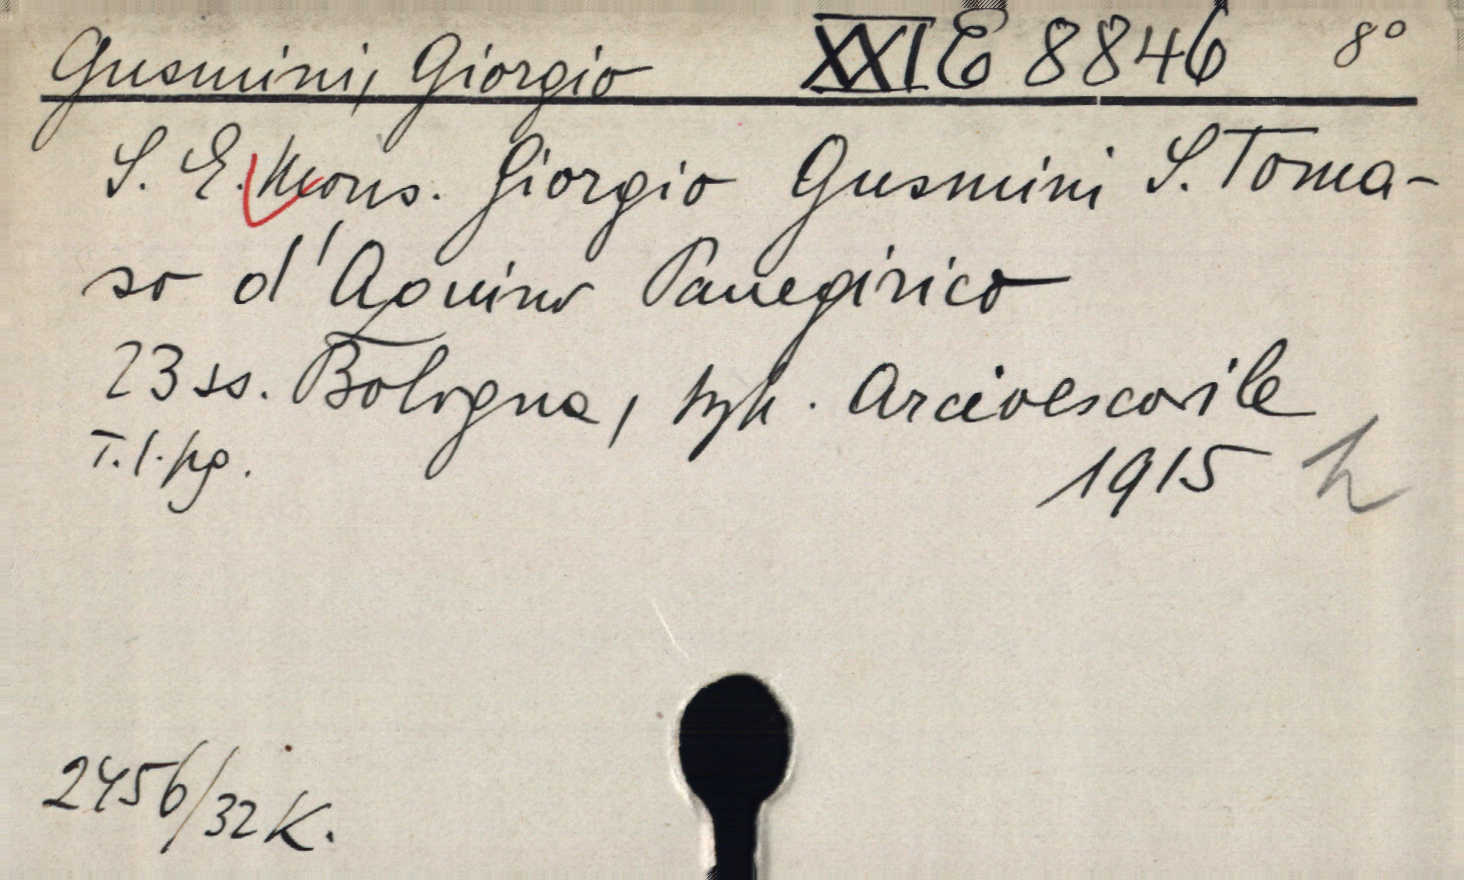 Gusmini, Giorgio XXI E 8846 8°
S. E. Mons. Giorgio Gusmini S. Toma-
so d'Aquino Panegirico
23 ss. Bologna, typ. Arcivescovile
T. l. pg. 1915 h
2456/32 K.